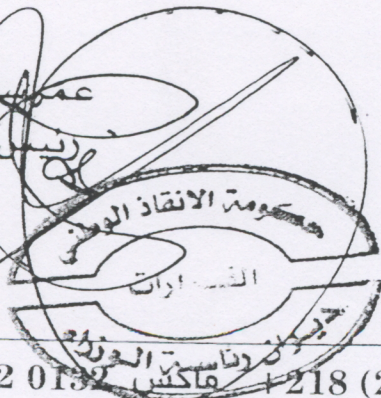 رئيس
حكومة الانقاذ الوطني
القرارات
ديوان رئاسة الوزراء
2 0132 فاكس +218 (2